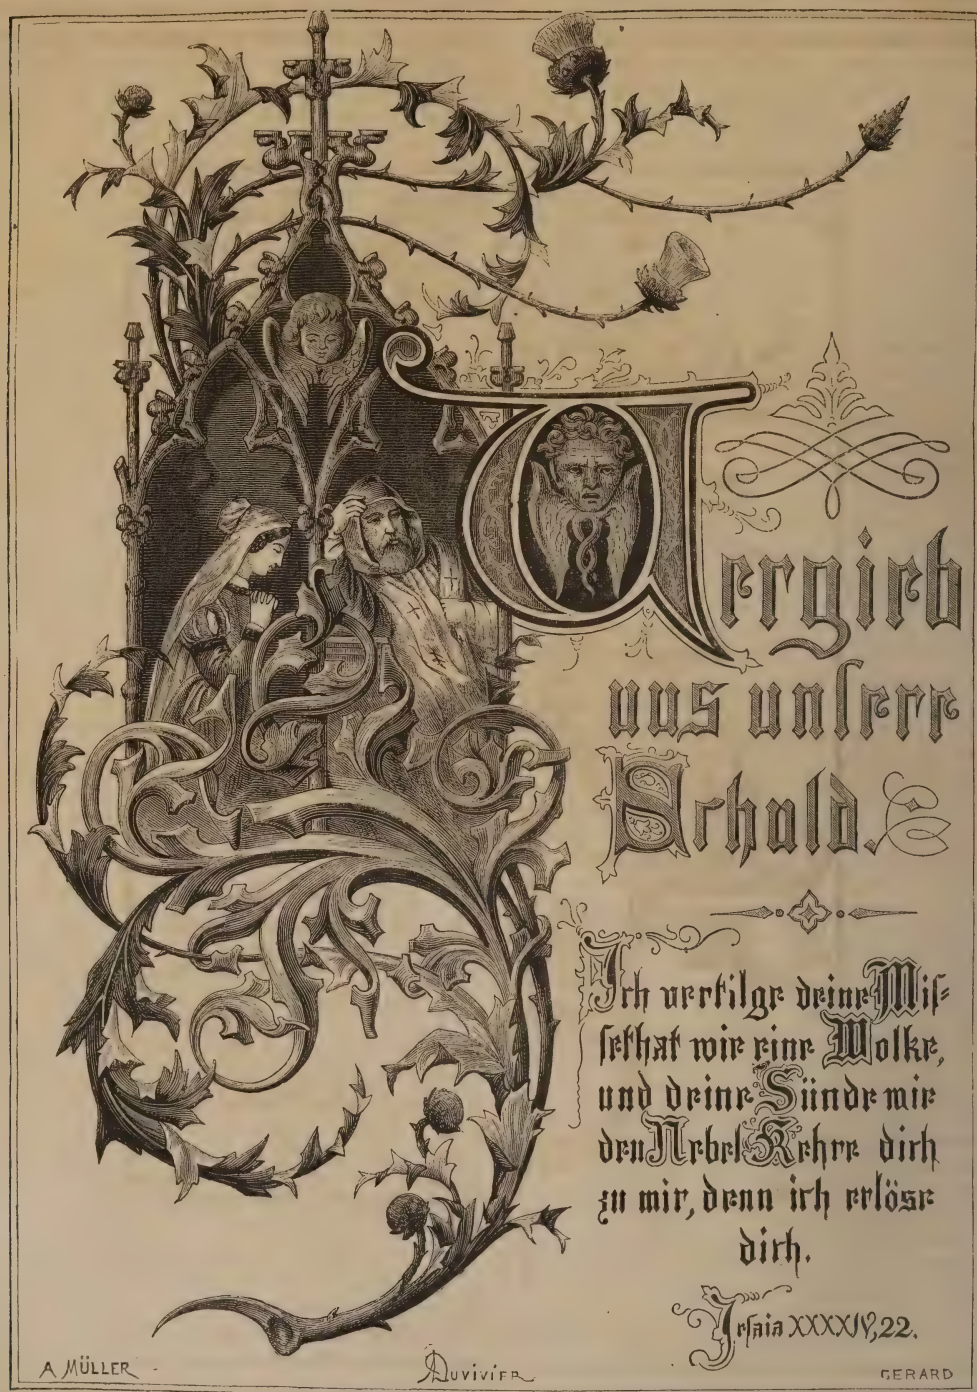 Vergieb
uns unsere
Schuld.
Ich vertilge deine Mis⸗
sethat wie eine Wolke,
und deine Sünde wie
den Nebel Kehre dich
zu mir, denn ich erlöse
dich.
Jesaia XXXXIV, 22.
A MÜLLER
ADUVIVIER
GERARD